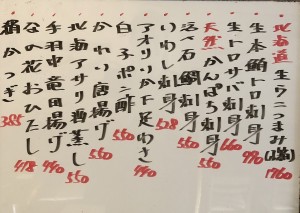 北海道 生ウニつまみ(塩) 1760
生本鮪トロ刺身 990
生トロサバ刺身 660
天然かんぱち刺身 550
活〆石鯛刺身 550
いわし刺身 528
アオリイカ下足わさ 440
白子ポン酢 550
かれい唐揚げ 550
北海アサリ酒蒸し 550
手羽中竜田揚げ 440
なの花おひたし 418
絹かつぎ 385